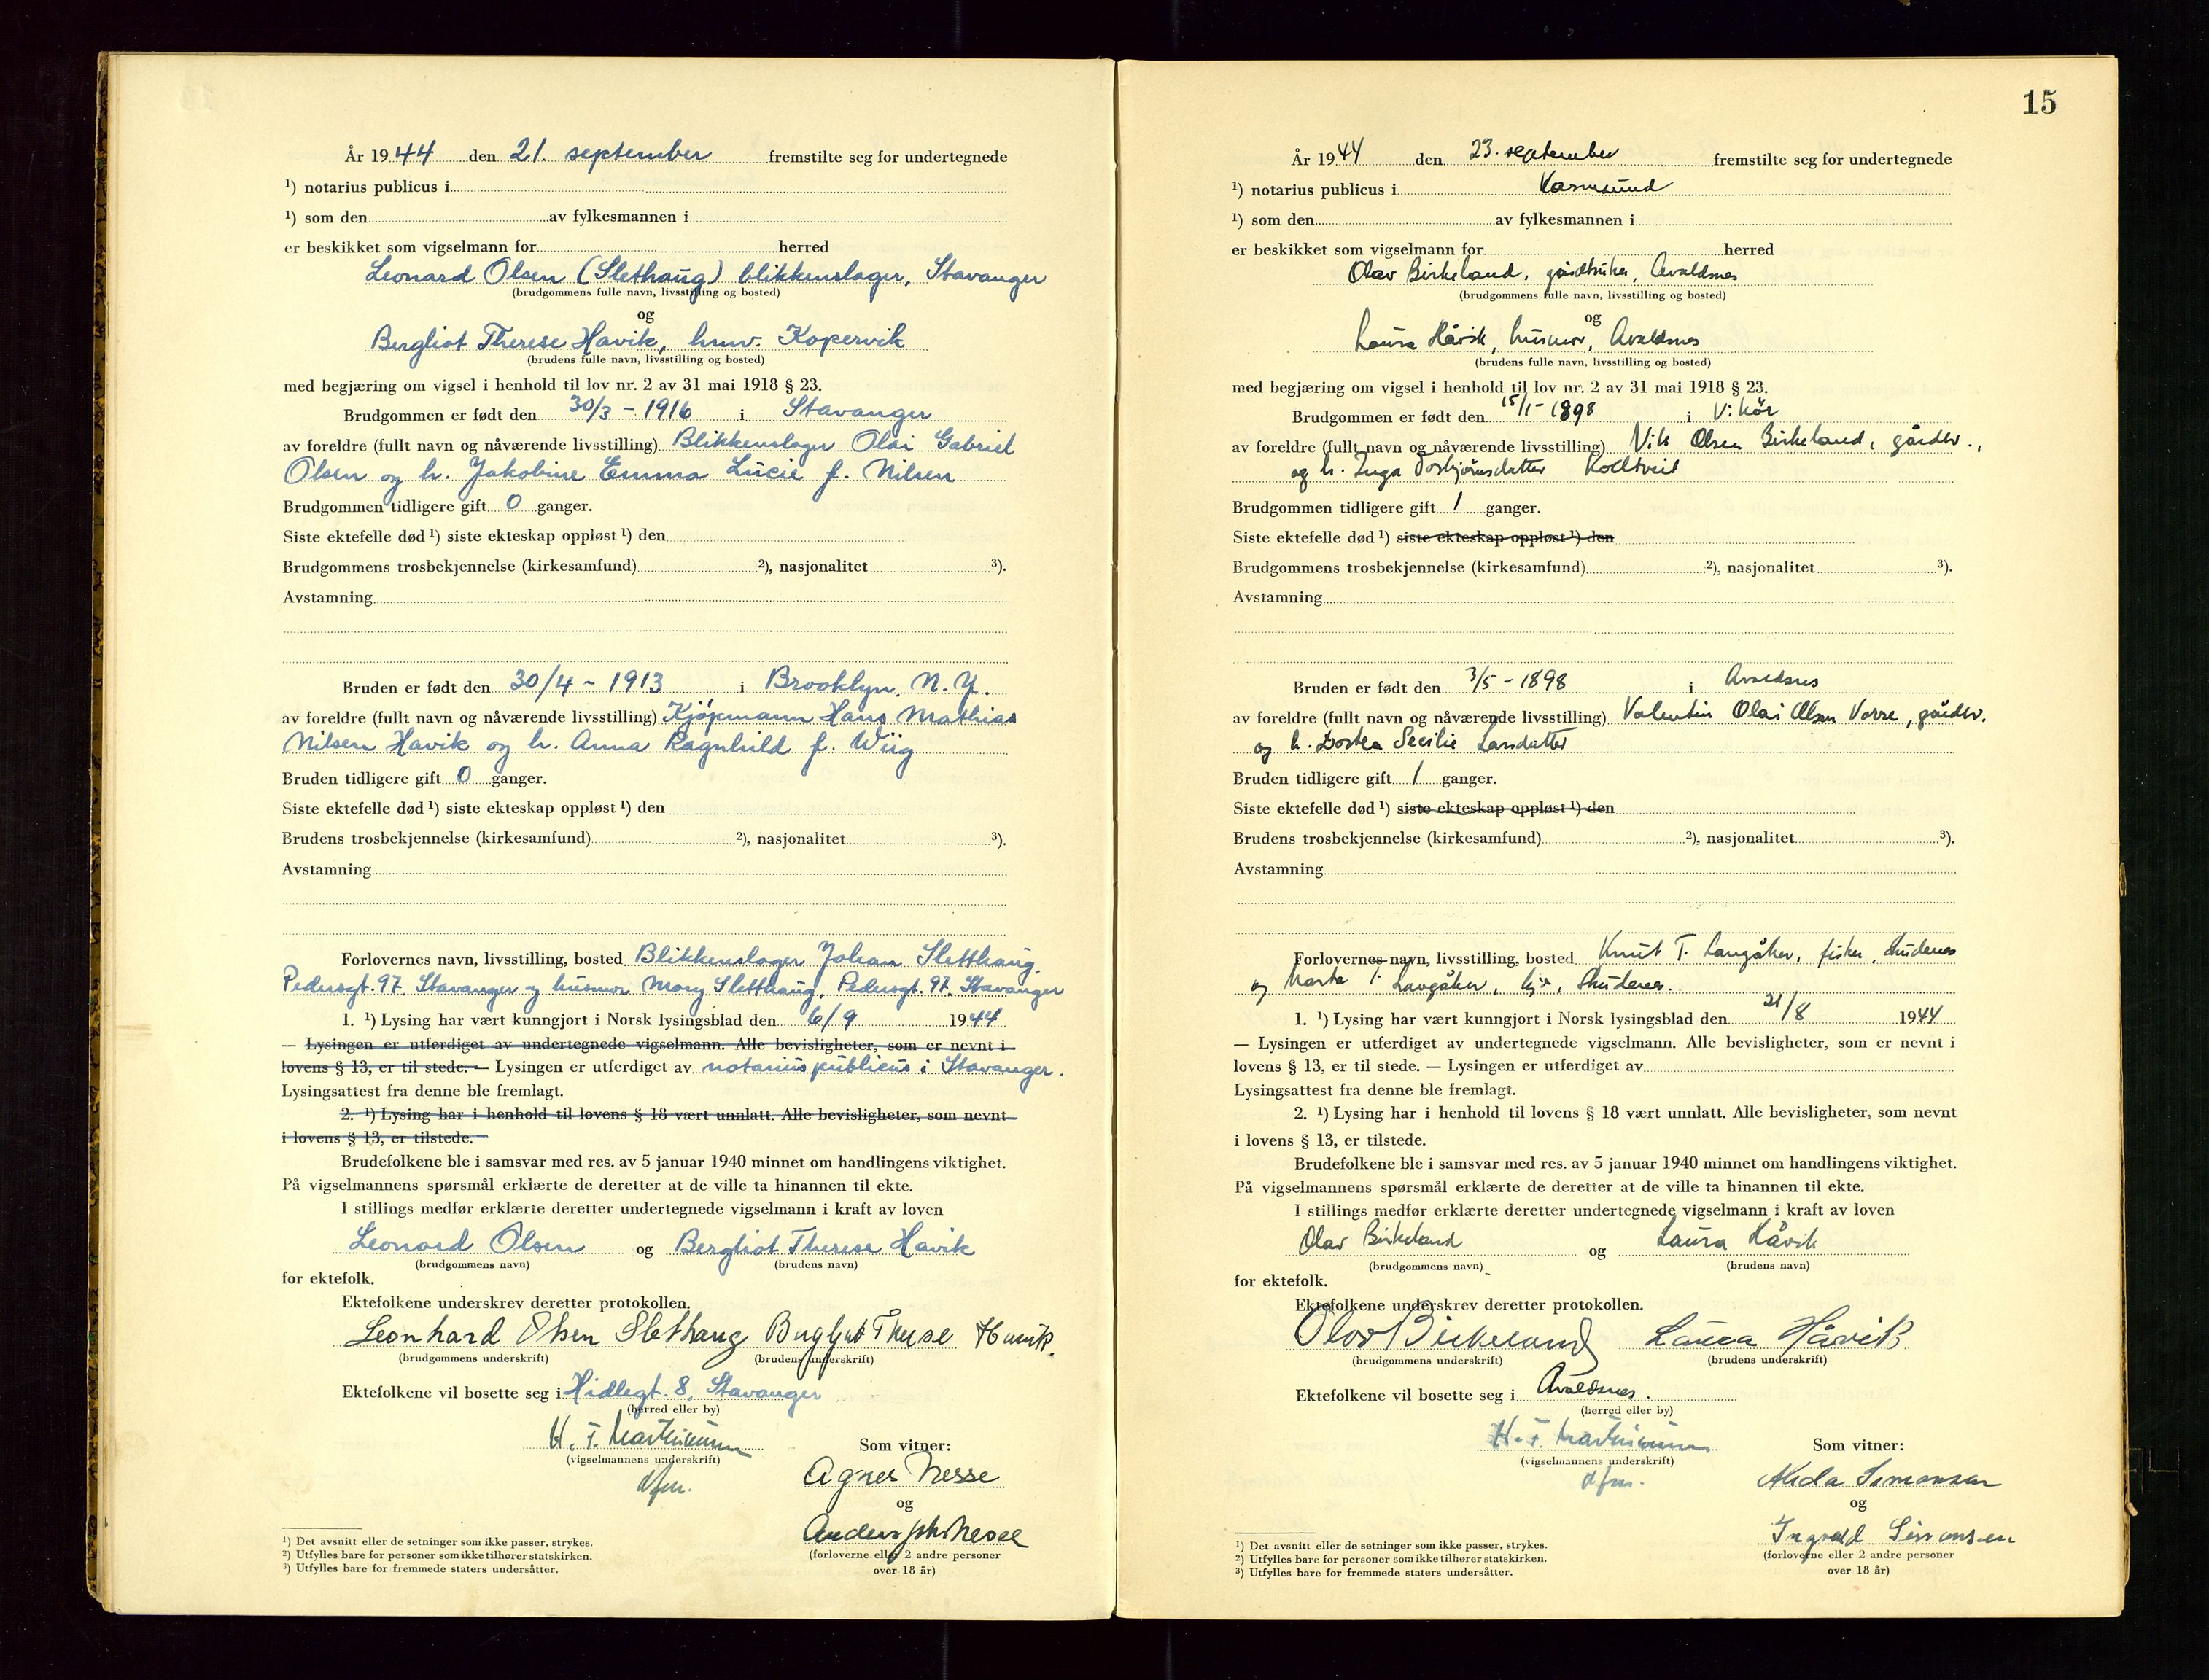 År 1944 den 21. september fremstilte seg for undertegnede
¹) notarius publicus i
¹) som den av fylkesmannen i
er beskikket som vigselmann for herred
Leonard Olsen (Slethaug) blikkenslager, Stavanger
(brudgommens fulle navn, livsstilling og bosted)
og
Bergliot Therese Havik, hmv. Kopervik
(brudens fulle navn, livsstilling og bosted)
med begjæring om vigsel i henhold til lov nr. 2 av 31 mai 1918 § 23.
Brudgommen er født den 30/3 - 1916 i Stavanger
av foreldre (fullt navn og nåværende livsstilling) Blikkenslager Olai Gabriel
Olsen og h. Jakobine Emma Lucie f. Nilsen
Brudgommen tidligere gift 0 ganger.
Siste ektefelle død ¹) siste ekteskap oppløst ¹) den
Brudgommens trosbekjennelse (kirkesamfund) ²), nasjonalitet ³).
Avstamning
Bruden er født den 30/4 - 1913 i Brooklyn, N.Y.
av foreldre (fullt navn og nåværende livsstilling) Kjøpmann Hans Mathias
Nilsen Havik og h. Anna Ragnhild f. Wiig
Bruden tidligere gift 0 ganger.
Siste ektefelle død ¹) siste ekteskap oppløst ¹) den
Brudens trosbekjennelse (kirkesamfund) ²), nasjonalitet ³).
Avstamning
Forlovernes navn, livsstilling, bosted Blikkenslager Johan Sletthaug,
Pedersgt. 97. Stavanger og husmor Mary Sletthaug, Pedersgt. 97. Stavanger
1. ¹) Lysing har vært kunngjort i Norsk lysingsblad den 6/9 1944
— Lysingen er utferdiget av undertegnede vigselmann. Alle bevisligheter, som er nevnt i
lovens § 13, er til stede. — Lysingen er utferdiget av notarius publicus i Stavanger.
Lysingsattest fra denne ble fremlagt.
2. ¹) Lysing har i henhold til lovens § 18 vært unnlatt. Alle bevisligheter, som nevnt
i lovens § 13, er tilstede.
Brudefolkene ble i samsvar med res. av 5 januar 1940 minnet om handlingens viktighet.
På vigselmannens spørsmål erklærte de deretter at de ville ta hinannen til ekte.
I stillings medfør erklærte deretter undertegnede vigselmann i kraft av loven
Leonard Olsen og Bergliot Therese Havik
(brudgommens navn) (brudens navn)
for ektefolk.
Ektefolkene underskrev deretter protokollen.
Leonhard Olsen Slethaug Bergljot Therese Havik.
(brudgommens underskrift) (brudens underskrift)
Ektefolkene vil bosette seg i Hidlegt. 8, Stavanger
(herred eller by)
(vigselmannens underskrift)
dfm.
Som vitner:
Agnes Nesse
og
Anders Nesse
(forloverne eller 2 andre personer
over 18 år)
¹) Det avsnitt eller de setninger som ikke passer, strykes.
²) Utfylles bare for personer som ikke tilhører statskirken.
³) Utfylles bare for fremmede staters undersåtter.
15
År 1944 den 23. september fremstilte seg for undertegnede
¹) notarius publicus i Karmsund
¹) som den av fylkesmannen i
er beskikket som vigselmann for herred
Olav Birkeland, gårdbruker, Avaldsnes
(brudgommens fulle navn, livsstilling og bosted)
og
Laura Håvik, husmor, Avaldsnes
(brudens fulle navn, livsstilling og bosted)
med begjæring om vigsel i henhold til lov nr. 2 av 31 mai 1918 § 23.
Brudgommen er født den 15/1 - 1898 i Vikör
av foreldre (fullt navn og nåværende livsstilling) Nils Olsen Birkeland, gårdbr.,
og h. Inga Torbjørnsdatter Kolltveit
Brudgommen tidligere gift 1 ganger.
Siste ektefelle død ¹) siste ekteskap oppløst ¹) den
Brudgommens trosbekjennelse (kirkesamfund) ²), nasjonalitet ³).
Avstamning
Bruden er født den 3/5 - 1898 i Avaldsnes
av foreldre (fullt navn og nåværende livsstilling) Valentin Olai Olsen Vorre, gårdbr.
og h. Dortea Secilie Larsdatter
Bruden tidligere gift 1 ganger.
Siste ektefelle død ¹) siste ekteskap oppløst ¹) den
Brudens trosbekjennelse (kirkesamfund) ²), nasjonalitet ³).
Avstamning
Forlovernes navn, livsstilling, bosted Knut T. Langåker, fisker, Skudenes
og Marta T. Langåker, Skudenes.
1. ¹) Lysing har vært kunngjort i Norsk lysingsblad den 31/8 1944
— Lysingen er utferdiget av undertegnede vigselmann. Alle bevisligheter, som er nevnt i
lovens § 13, er til stede. — Lysingen er utferdiget av
Lysingsattest fra denne ble fremlagt.
2. ¹) Lysing har i henhold til lovens § 18 vært unnlatt. Alle bevisligheter, som nevnt
i lovens § 13, er tilstede.
Brudefolkene ble i samsvar med res. av 5 januar 1940 minnet om handlingens viktighet.
På vigselmannens spørsmål erklærte de deretter at de ville ta hinannen til ekte.
I stillings medfør erklærte deretter undertegnede vigselmann i kraft av loven
Olav Birkeland og Laura Håvik
(brudgommens navn) (brudens navn)
for ektefolk.
Ektefolkene underskrev deretter protokollen.
Olav Birkeland Laura Håvik
(brudgommens underskrift) (brudens underskrift)
Ektefolkene vil bosette seg i Avaldsnes.
(herred eller by)
(vigselmannens underskrift)
dfm.
Som vitner:
Alida Simonsen
og
Ingvald Simonsen
(forloverne eller 2 andre personer
over 18 år)
¹) Det avsnitt eller de setninger som ikke passer, strykes.
²) Utfylles bare for personer som ikke tilhører statskirken.
³) Utfylles bare for fremmede staters undersåtter.